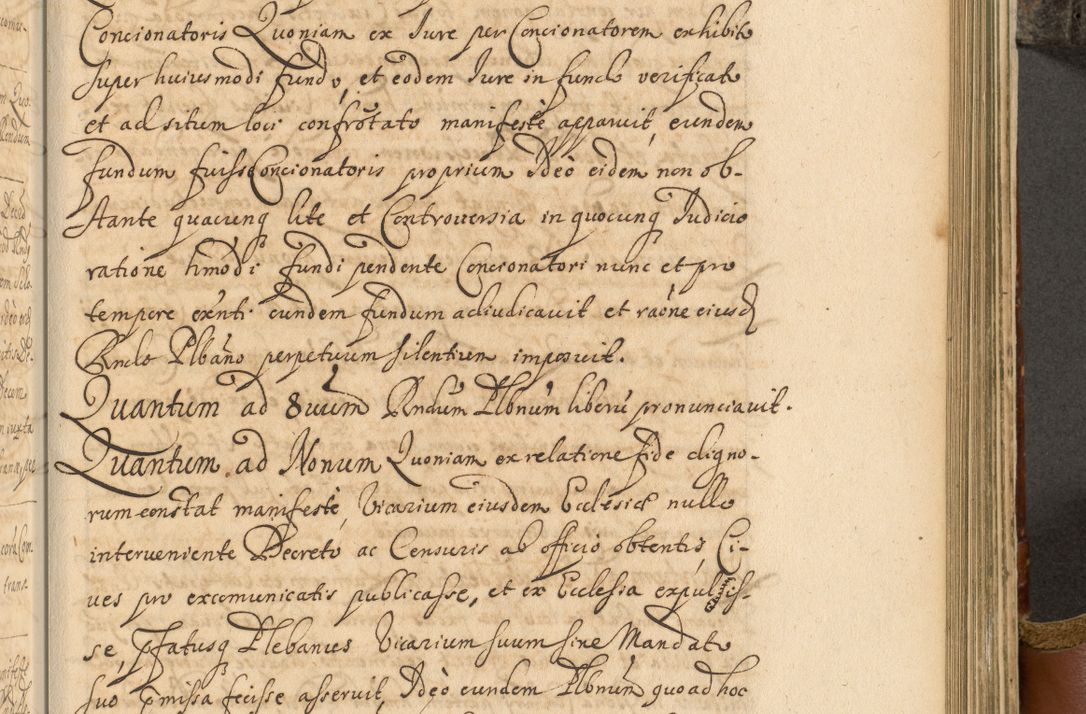 Concionatoris Quoniam ex Iure per Concionatorem exhibito
super huiusmodi fundo, et eodem Iure in fundo verificato
et ad situm loci confrōtato manifestè apparuit, eundem
fundum fuisse Concionatoris proprium Ideò eidem non ob-
stante quacunq lite et Controversia in quocunq Iudicio
ratione hmódi fundi pendente Concionatori nunc et pro
tempore exñti eundem fundum adiudicavit et raõne eiusd
Rndo Plbano perpetuum silentium imposuit.
Quantum ad 8uum Rndum Plbnum liberū pronunciavit.
Quantum ad Nonum Quoniam ex relatione fide digno-
rum constat manifestè, Vicarium eiusdem Ecclesiæ nullo
interveniente Decreto ac Censuris ab officio obtentis, Ci-
ves pro excomunicatis publicasse, et ex Ecclesia expulis-
se, pfatusq Plebanus Vicarium suum sine Mandato
suo pmissa fecisse asseruit, Ideò eundem Plbnum quo ad hoc